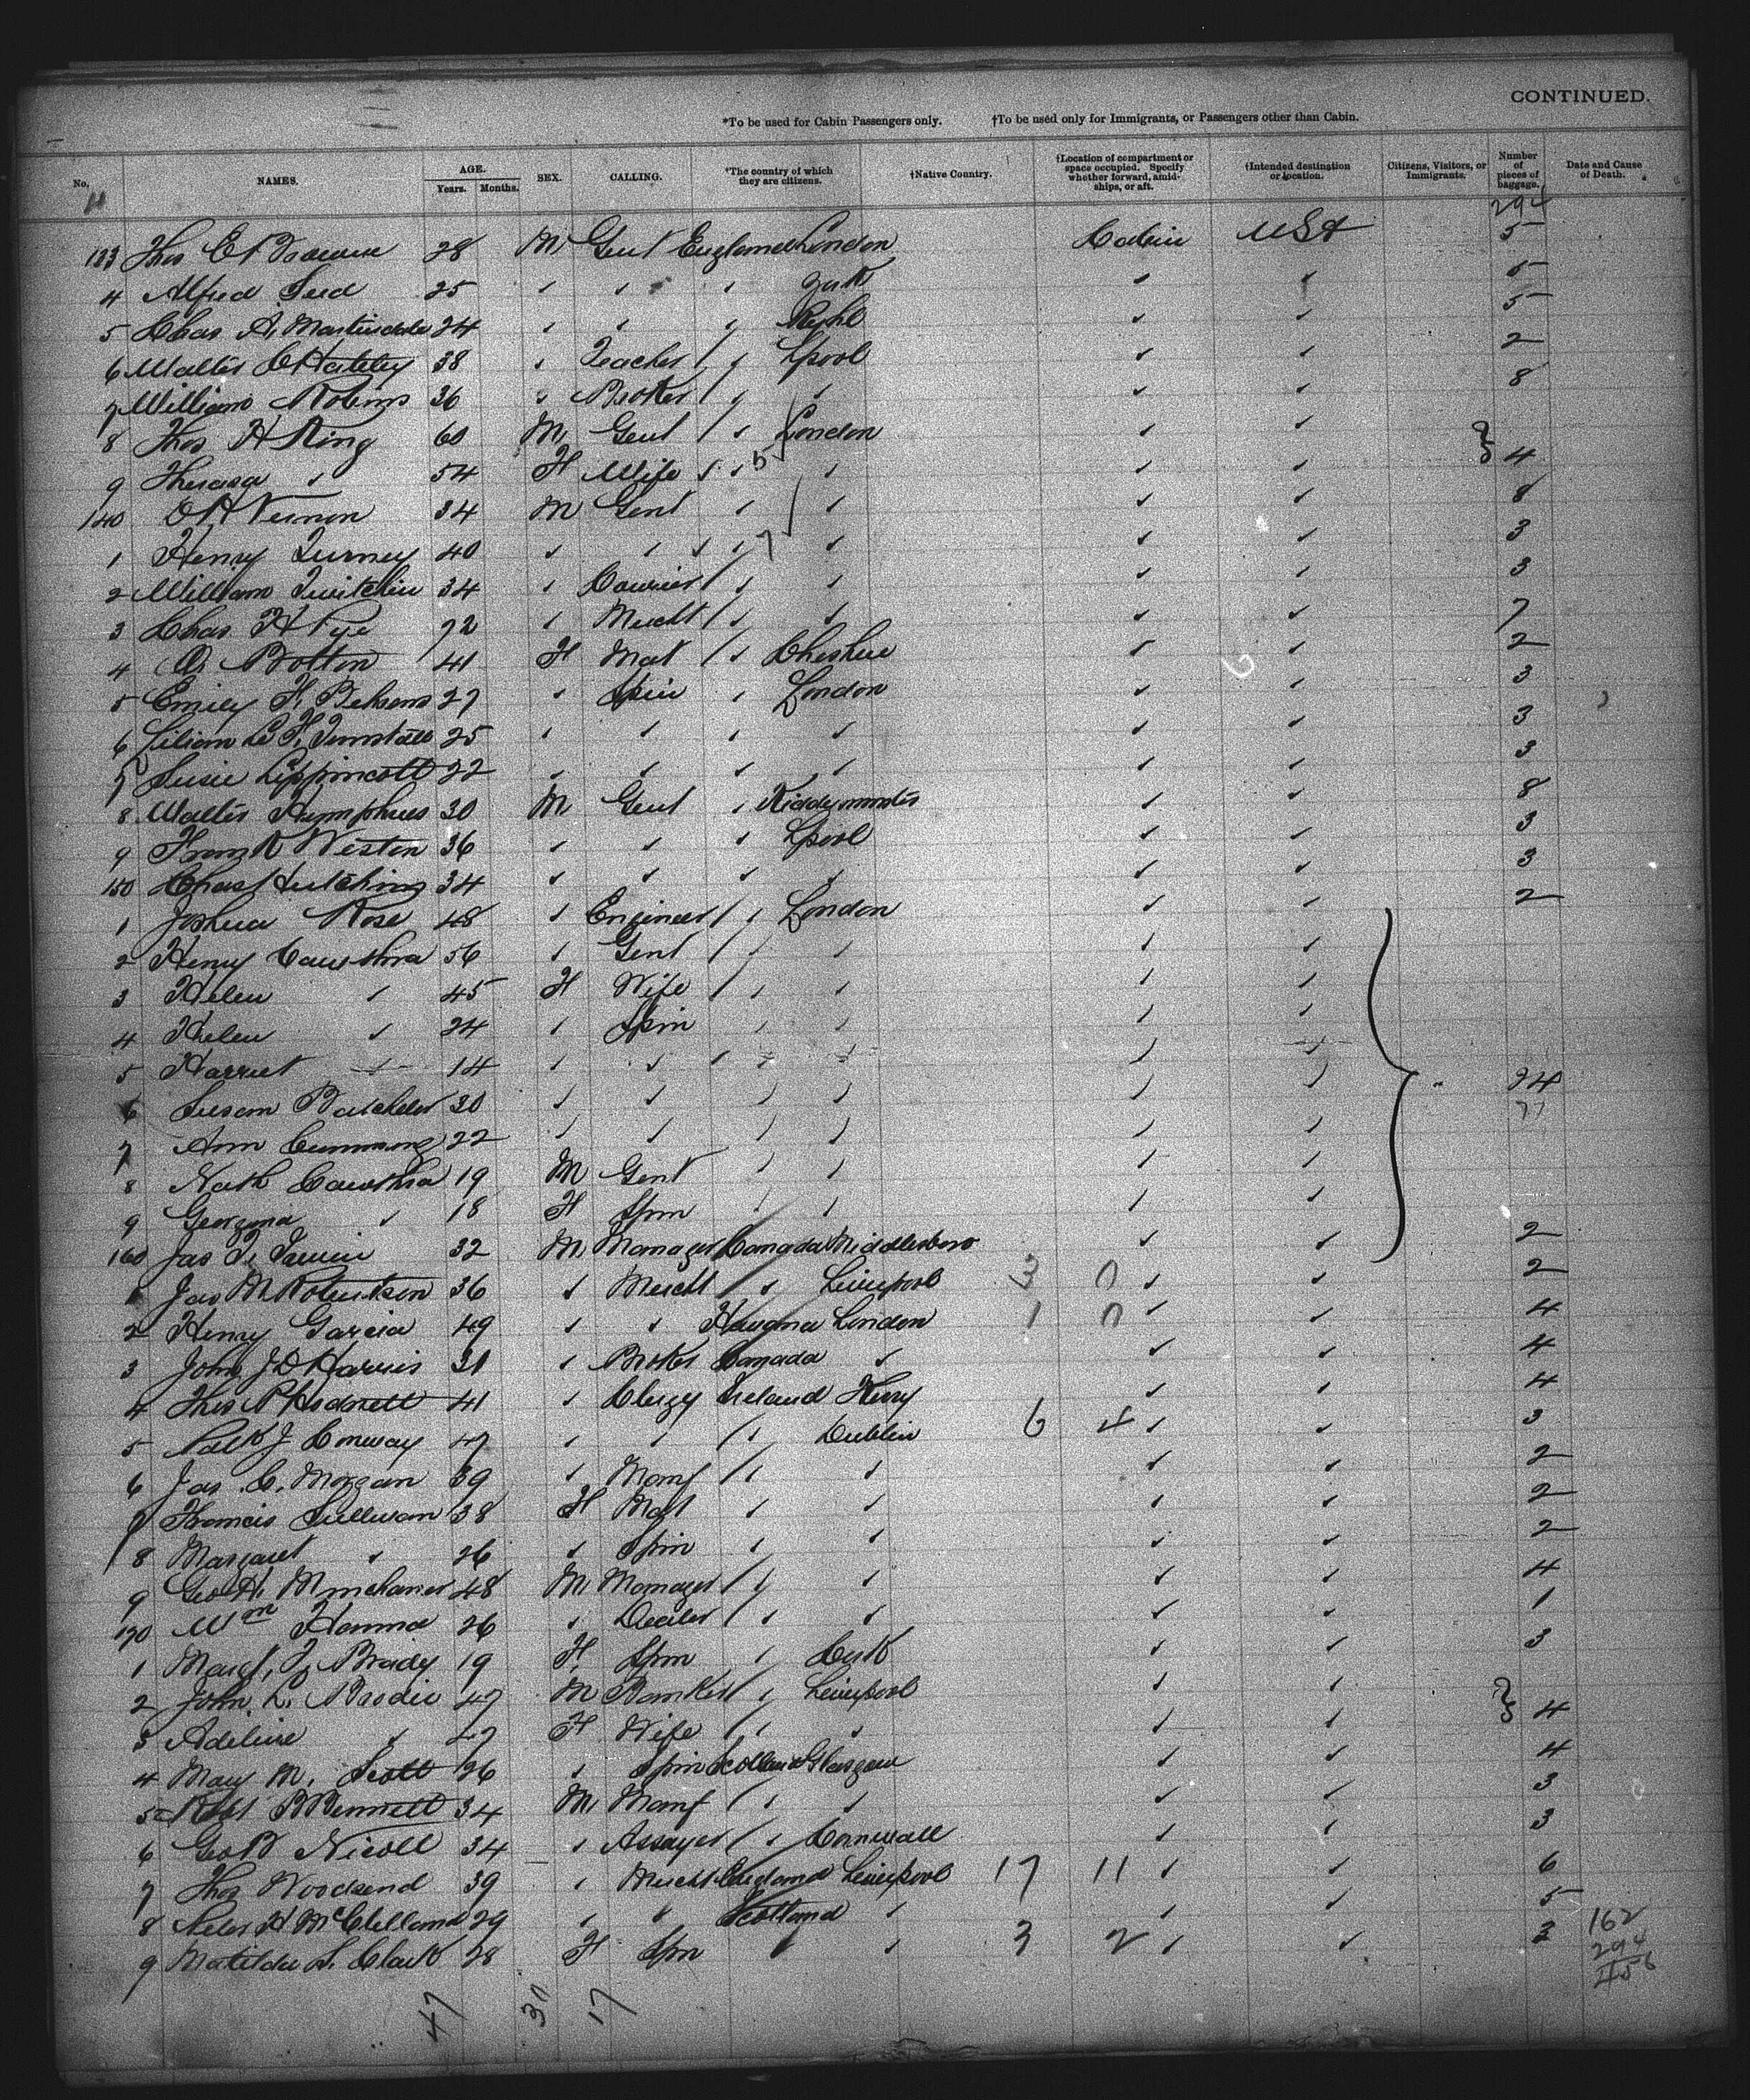 CONTINUED.
*To be used for Cabin Passengers only. †To be used only for Immigrants, or Passengers other than Cabin.
No. NAMES. AGE. Years. Months. SEX. CALLING. *The country of which they are citizens. †Native Country. †Location of compartment or space occupied. Specify whether forward, amidships, or aft. †Intended destination or location. Citizens, Visitors, or Immigrants. Number of pieces of baggage. Date and Cause of Death.
294
133 Thos E Browne 28 M Gent England London Cabin USA 5
4 Alfred 25 ✓ ✓ ✓ ✓ ✓ 5
5 Chas A. Martindale 24 ✓ ✓ ✓ Rhyl ✓ ✓ 5
6 Walter 38 ✓ Teacher ✓ Lpool ✓ ✓ 2
7 William Robins 36 ✓ Broker ✓ ✓ ✓ ✓ 8
8 Thos H King 60 M Gent ✓ London ✓ ✓
9 Theresa ✓ 54 F Wife ✓ ✓ ✓ ✓ 4
140 Vernon 34 M Gent ✓ ✓ ✓ ✓ 8
1 Henry Turney 40 ✓ ✓ ✓ ✓ ✓ ✓ 3
2 William Twitchin 34 ✓ Courier ✓ ✓ ✓ ✓ 3
3 Chas H Pye 72 ✓ Mercht ✓ ✓ ✓ ✓ 7
4 Bolton 41 F Mat ✓ Cheshire ✓ ✓ 2
5 Emily F. Behrens 27 ✓ Spin ✓ London ✓ ✓ 3
6 Lilian Tunstall 25 ✓ ✓ ✓ ✓ ✓ ✓ 3
7 Susie Lippincott 22 ✓ ✓ ✓ ✓ ✓ ✓ 3
8 Walter Humphries 30 M Gent ✓ Kidderminster ✓ ✓ 8
9 Frank Weston 36 ✓ ✓ ✓ Lpool ✓ ✓ 3
150 Chas Hutchins 34 ✓ ✓ ✓ ✓ ✓ ✓ 3
1 Joshua Rose 48 ✓ Engineer ✓ London ✓ ✓ 2
2 Henry Cawthra 56 ✓ Gent ✓ ✓ ✓ ✓
3 Helen ✓ 45 F Wife ✓ ✓ ✓ ✓
4 Helen ✓ 24 ✓ Spin ✓ ✓ ✓ ✓
5 Harriet ✓ 14 ✓ ✓ ✓ ✓ ✓ ✓
6 Susan Batchelor 30 ✓ ✓ ✓ ✓ ✓ ✓ 24
7 Ann Cumming 22 ✓ ✓ ✓ ✓ ✓ ✓
8 Nath Cawthra 19 M Gent ✓ ✓ ✓ ✓
9 Georgina ✓ 18 F Spin ✓ ✓ ✓ ✓
160 Jas 32 M Manager Canada Middlesboro ✓ ✓ 2
1 Jas M Robertson 36 ✓ Mercht ✓ Liverpool 3 0 ✓ ✓ 2
2 Henry Garcia 49 ✓ ✓ Havana London 1 0 ✓ ✓ 4
3 John J D Harris 31 ✓ Broker Canada ✓ ✓ ✓ 4
4 Thos P Hodnett 41 ✓ Clergy Ireland Kerry ✓ ✓ 4
5 Patk J Conway 47 ✓ ✓ ✓ Dublin 6 4 ✓ ✓ 3
6 Jas C. Morgan 39 ✓ Manf ✓ ✓ ✓ ✓ 2
7 Francis Sullivan 38 F Mat ✓ ✓ ✓ ✓ 2
8 Margaret ✓ 26 ✓ Spin ✓ ✓ ✓ ✓ 2
9 Geo H. 48 M Manager ✓ ✓ ✓ ✓ 4
170 Wm Hanna 26 ✓ Dealer ✓ ✓ ✓ ✓ 1
1 Margt. Brady 19 F. Spin ✓ Cork ✓ ✓ 3
2 John L. Brodie 47 M Banker ✓ Liverpool ✓ ✓
3 Adeline ✓ 47 F Wife ✓ ✓ ✓ ✓ 4
4 Mary M. Scott 26 ✓ Spin Scotland Glasgow ✓ ✓ 4
5 Robt B Bennett 34 M Manf ✓ ✓ ✓ ✓ 3
6 Geo B Nicoll 34 ✓ Assayer ✓ Cornwall ✓ ✓ 3
7 Thos Woodsend 39 ✓ Mercht England Liverpool 17 11 ✓ ✓ 6
8 Peter H McClelland 29 ✓ ✓ Scotland ✓ ✓ ✓ 5
9 Matilda S. Clark 28 F Spin ✓ ✓ 3 2 ✓ ✓ 3
162
294
456
47 30 17